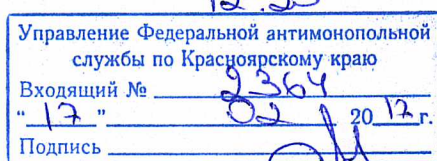 12.20
Управление Федеральной антимонопольной
службы по Красноярскому краю
Входящий № 2364
"17" 02 2017г.
Подпись